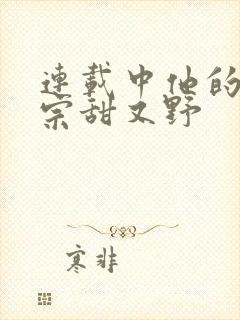 連載中他的
宗甜又野
寒非